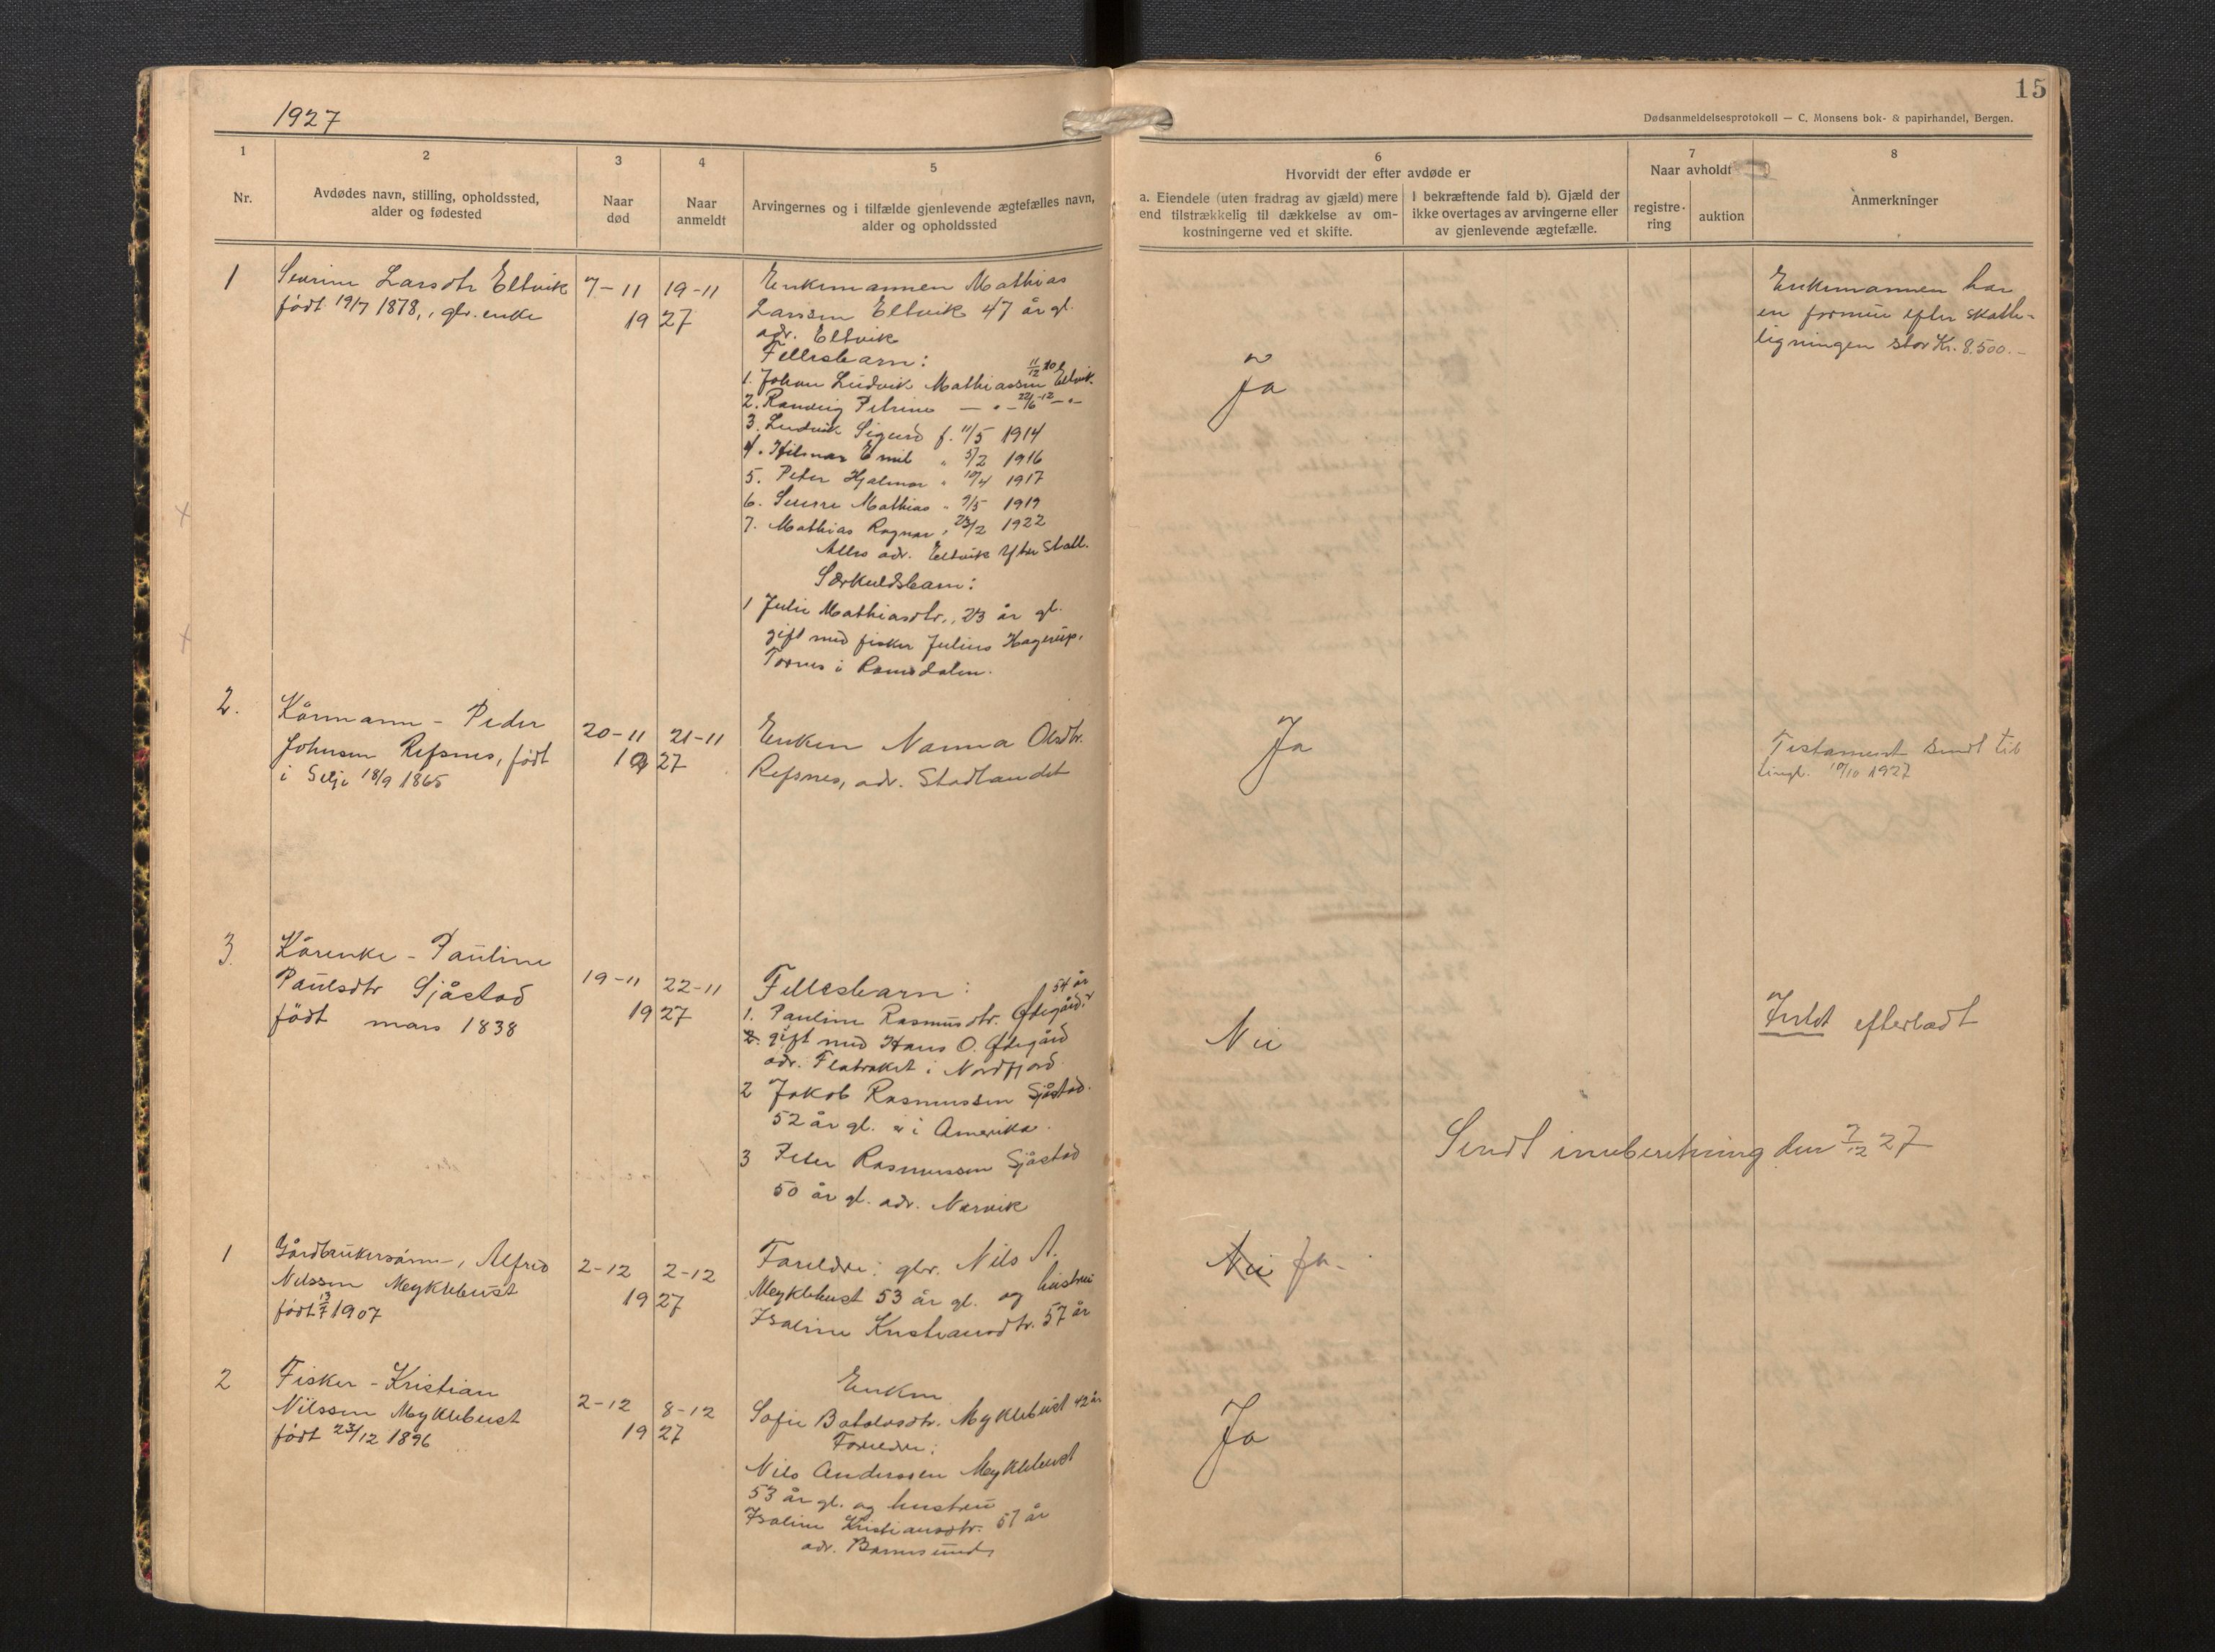 1927
15
Dødsanmeldelsesprotokoll — C. Monsens bok- & papirhandel, Bergen.
1
Nr.
2
Avdødes navn, stilling, opholdssted,
alder og fødested
3
Naar
død
4
Naar
anmeldt
5
Arvingernes og i tilfælde gjenlevende ægtefælles navn,
alder og opholdssted
6
Hvorvidt der efter avdøde er
a. Eiendele (uten fradrag av gjæld) mere
end tilstrækkelig til dækkelse av om-
kostningerne ved et skifte.
I bekræftende fald b). Gjæld der
ikke overtages av arvingerne eller
av gjenlevende ægtefælle.
7
Naar avholdt
registre-
ring
auktion
8
Anmerkninger
1
Sevrine Larsdtr Eltvik
født 19/7 1878, gbr. enke
7-11
19-11
1927
Enkemannen Mathias
Larsen Eltvik 47 år gl.
adr. Eltvik
Fellesbarn:
1. Johan Ludvik Mathiassen Eltvik
2. Randvig Petrine
3. Ludvik Sigurd f. 11/5 1914
4. Hilmar Emil " 5/2 1916
5. Peter Hjalmar " 10/4 1917
6. Sverre Mathias " 9/5 1919
7. Mathias Ragnar " 23/2 1922
Alles adr. Eltvik Ytre Stadl.
Særkuldsbarn:
1 Julie Mathiasdtr., 23 år gl.
gift med fisker Julius Hagerup,
Tornes i Romsdalen.
Ja
Enkemannen har
en formue efter skatte-
ligningen stor Kr. 8.500.-
2.
Kårmann - Peder
Johnsen Refsnes, født
i Selje 18/9 1865
20-11
21-11
1927
Enken Nanna Olsdtr.
Refsnes, adr. Stadlandet
Ja
Testament sendt til
tingl. 10/10 1927
3.
Kårenke - Pauline
Paulsdtr Sjåstad
født mars 1838
19-11
22-11
1927
Fellesbarn: 54 år
1. Pauline Rasmusdtr. Ødegård
gift med Hans O. Ødegård
adr. Flatraket i Nordfjord
2 Jakob Rasmussen Sjåstad.
52 år gl. er i Amerika.
3 Peter Rasmussen Sjåstad
50 år gl. adr. Narvik
Nei
Intet efterladt
Sendt innberetning den 7/12 27
1
Gårdbrukersønn-, Alfred
Nilssen Myklebust
født 13/7 1907
2-12
2-12
1927
Foreldre: gbr. Nils A.
Myklebust 53 år gl. og hustru
Isaline Kristiansdtr. 57 år
Nei Ja.
2
Fisker - Kristian
Nilssen Myklebust
født 23/12 1896
2-12
8-12
1927
Enken
Sofie Myklebust 42 år
Foreldre:
Nils Anderssen Myklebust
53 år gl. og hustru
Isaline Kristiansdtr. 57 år
adr. Barmsund
Ja